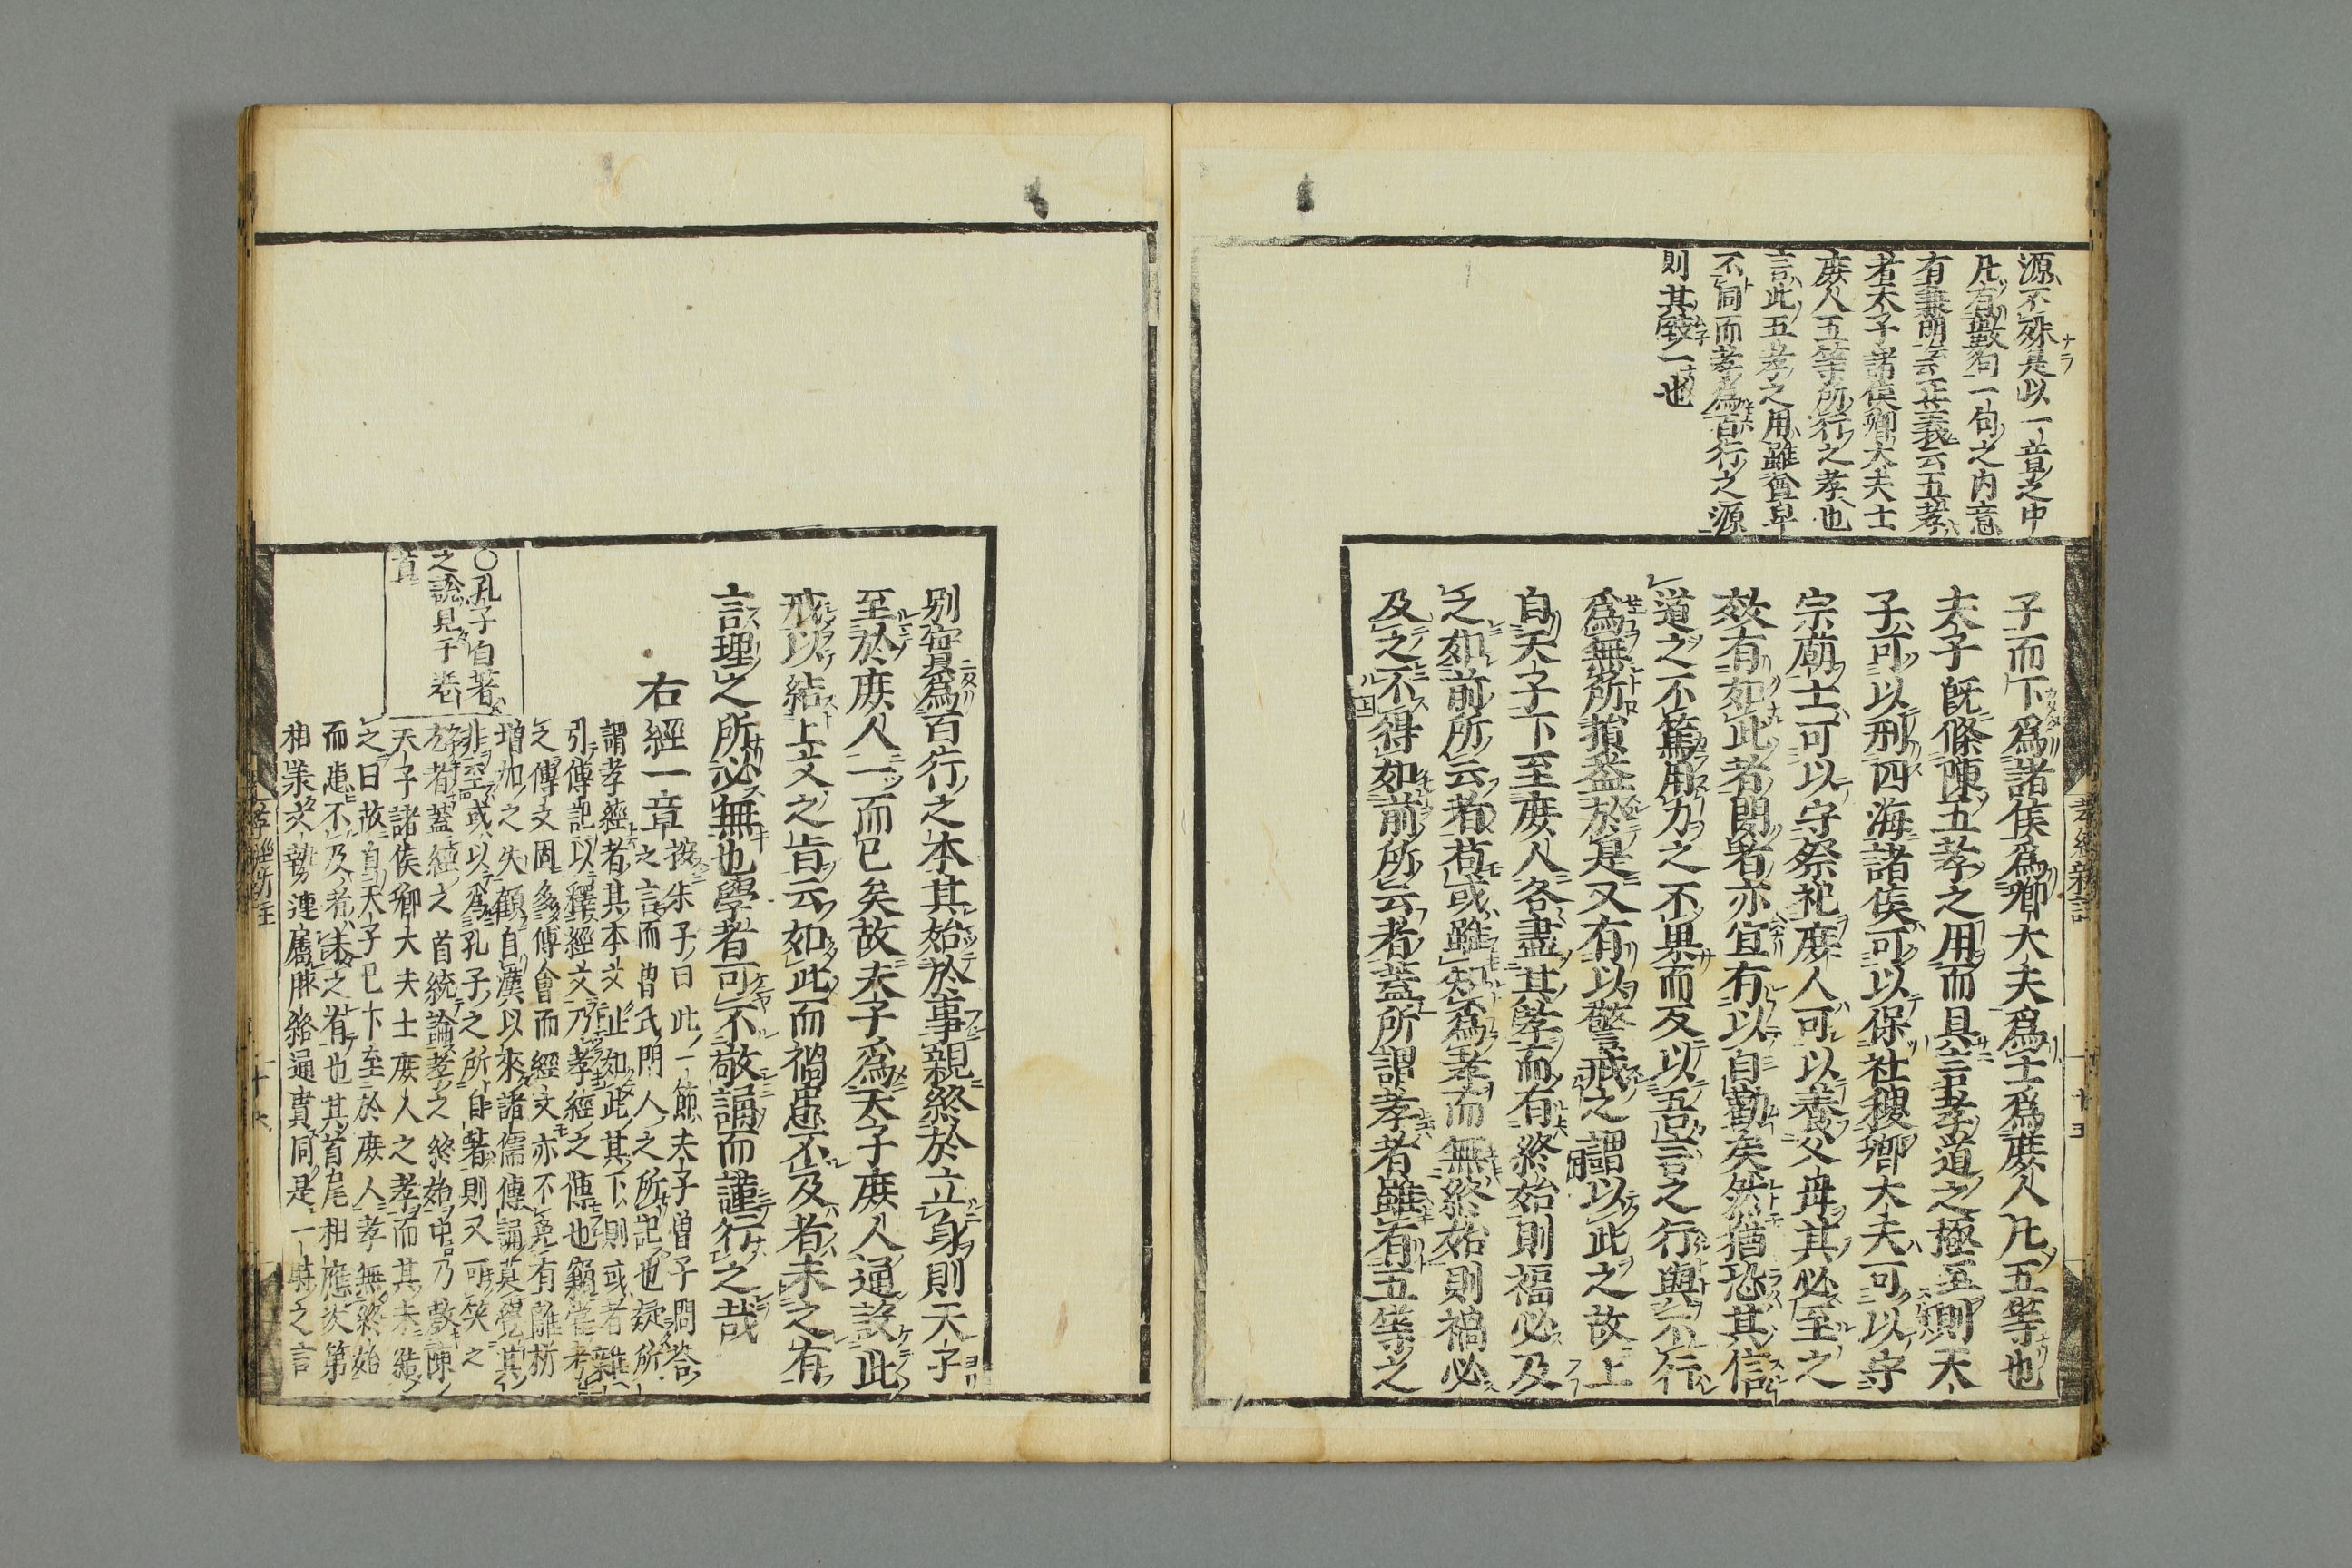 源不殊是以一章之中
凡有數句一句之内意
有兼明
者天子諸侯卿大夫士
庶人五等所行之孝也
言此五孝之用雖尊卑
不同而孝爲百行之源
則其致一也
子而下爲諸侯爲卿大夫爲士爲庶人凡五等也
夫子旣條陳五孝之用而具言孝道之極至則天
子可以刑四海諸侯可以保社稷卿大夫可以守
宗廟士可以守祭祀庶人可以養父母其必至之
效有如此者聞者亦宜有以自勸矣然猶恐其信
道之不篤用力之不果而反以吾言之行與不行
爲無所損益於是又有以警戒之謂以此之故上
自天子下至庶人各盡其孝而有終始則福必及
之如前所云者苟或雖知爲孝而無終始則禍必
及之不得如前所云者蓋所謂孝者雖有五等之
孝經
廿五
別實爲百行之本其始於事親終於立身則天子
至於庶人一而已矣故夫子爲天子庶人通設此
戒以結上文之旨云如此而禍患不及者未之有
言理之所必無也學者可不敬誦而謹行之哉
右經一章
按朱子曰此一節夫子曾子問答
之言而曾氏門人之所記也疑所
謂孝經者其本文止如此其下則或者雜
引傳記以釋經文乃孝經之傳也竊嘗考
之傳文固多傅會而經文亦不免有離析
增加之失顧自漢以來諸儒傳誦莫覺其
非至或以爲孔子之所自著則又可笑之
尤者蓋經之首統論孝之終始中乃敷陳
天子諸侯卿大夫士庶人之孝而其末結
之曰故自天子已下至於庶人孝無終始
而患不及者未之有也其首尾相應次第
相承文勢連屬脉絡通貫同是一時之言
〇孔子自著
之說見于卷
首
孝經